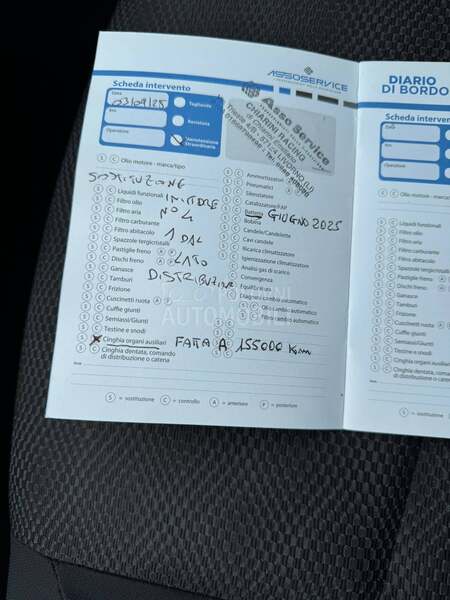 ASSOSERVICE
Scheda intervento
Data
03/09/25
Km
Operatore
Tagliando
Revisione
Manutenzione Straordinaria
Asso Service
CHIARINI RACING
di Chiarini Emiliano
S C Olio motore - marca/tipo
SOSTITUZIONE
S C Liquidi funzionali
INIETTORE
S C Filtro olio
S C Filtro aria
N° 4
S C Filtro carburante
S C Filtro abitacolo
1 DAL
S C Spazzole tergicristalli
S C Pastiglie freno A P
LATO
S C Dischi freno A P
S C Ganasce
DISTRIBUZIONE
S C Tamburi
S C Frizione
S C Cuscinetti ruota A P
S C Cuffie giunti
S C Semiassi/Giunti
S C Testine e snodi
S C Cinghia organi ausiliari
FATTA A 155000 Km
S C Cinghia dentata, comando di distribuzione o catena
S C Ammortizzatori A P
S C Pneumatici A P
S C Silenziatore
S C Catalizzatore/FAP
S C Batteria
GIUGNO 2025
S C Bobina
S C Candele/Candelette
S C Cavi candele
S C Ricarica climatizzatore
S C Igienizzazione climatizzatore
Analisi gas di scarico
Convergenza
Equilibratura
Diagnosi cambio automatico
Olio cambio automatico
Filtro cambio automatico
Note
S = sostituzione C = controllo A = anteriore P = posteriore
DIARIO
DI BORDO
Scheda intervento
Data
Km
Operatore
S C Olio motore - marca/tipo
S C Liquidi funzionali
S C Filtro olio
S C Filtro aria
S C Filtro carburante
S C Filtro abitacolo
S C Spazzole tergicristalli
S C Pastiglie freno A
S C Dischi freno A
S C Ganasce
S C Tamburi
S C Frizione
S C Cuscinetti ruota A
S C Cuffie giunti
S C Semiassi/Giunti
S C Testine e snodi
S C Cinghia organi ausiliari
S C Cinghia dentata, comando di distribuzione o catena
Note
S = sostituzione
AUTOMOBILI